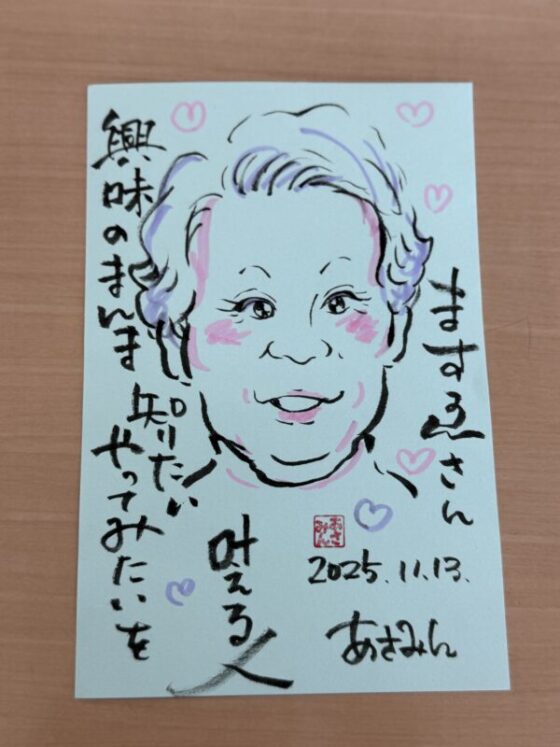 ますゑさん
興味のまんま
知りたい
やってみたいを
叶える人
2025.11.13.
あさみん
あさ
みん